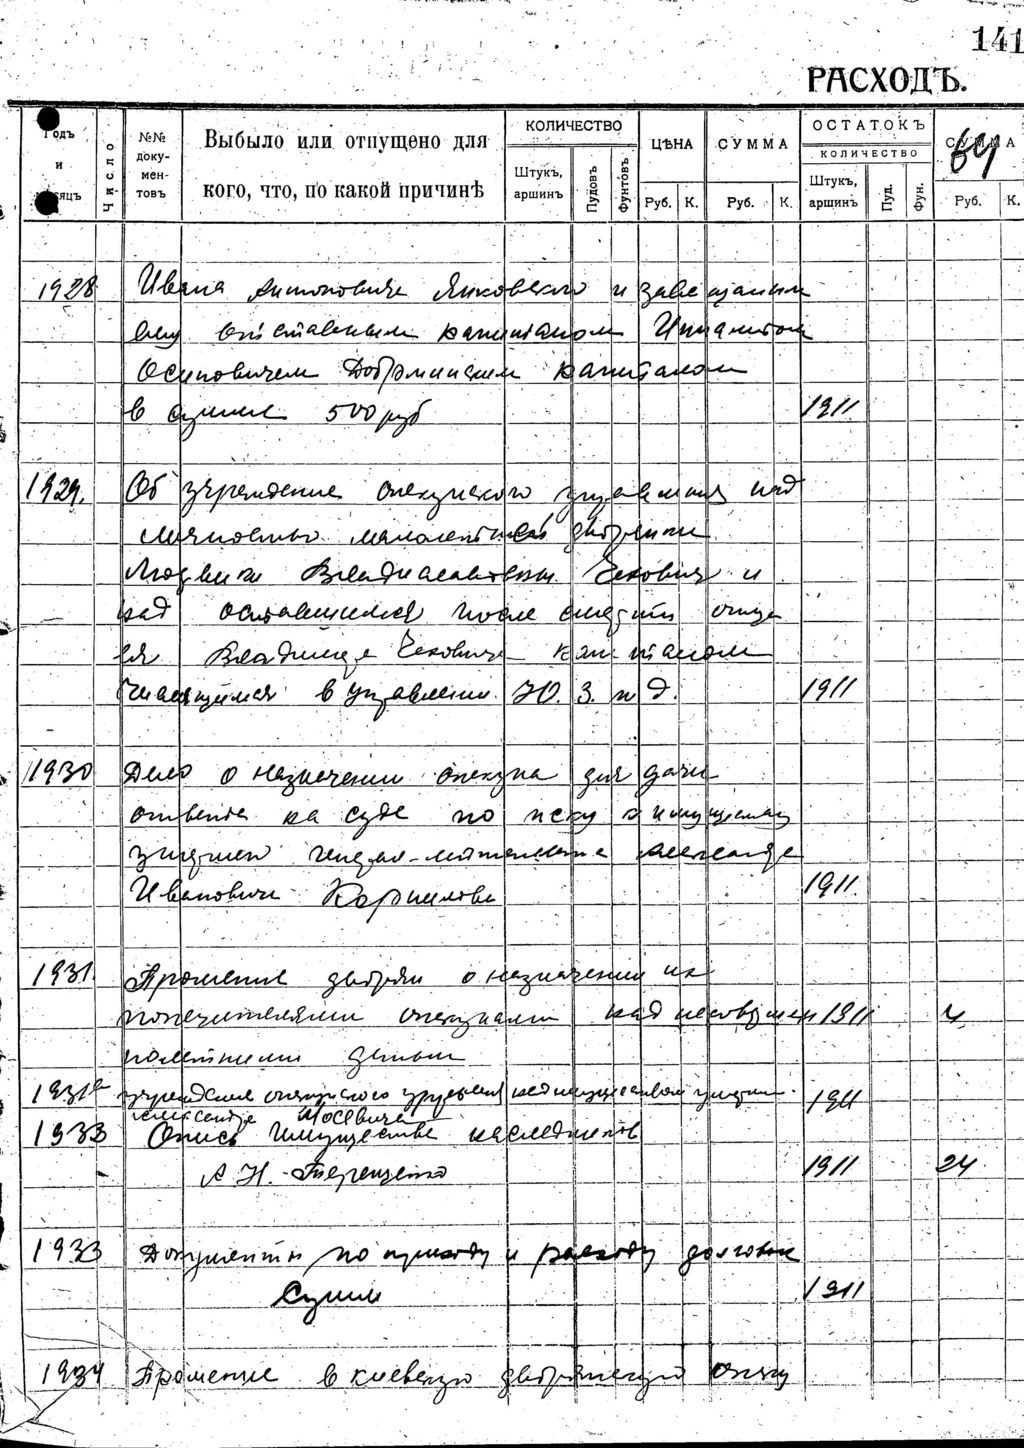 141
РАСХОДЪ.
Годъ и мѣсяцъ
Число
№№ доку-ментовъ
Выбыло или отпущено для
кого, что, по какой причинѣ
КОЛИЧЕСТВО
Штукъ, аршинъ
Пудовъ
Фунтовъ
ЦѢНА
Руб. К.
СУММА
Руб. К.
ОСТАТОКЪ
КОЛИЧЕСТВО
Штукъ, аршинъ
Пуд.
Фун.
СУММА
Руб. К.
1928 Ивана Антоновича Янковского и завещанным
ему отставным капитаном
Осиповичем капиталом
в сумме 500 руб 1911
1929. Об учреждении опекунского управления над
личностью малолетней дворянки
Людвиги Владиславовны Чехович и
над оставшимся после смерти отца
ея Чеховича капиталом
в управлении Ю. З. ж д. 1911
1930 Дело о назначении опекуна для дачи
ответа на суде по иску к имуществу
умершего генерал-лейтенанта Александра
Ивановича Корнилова 1911.
1931. Прошение дворян о назначении их
попечителями опекунами над несовершен 1911 4
нолетними детьми
1931а учреждения опекунского управления над имуществом 1911
1933 Опись имущества наследников
А. Н. Терещенко 1911 24
1933 Документы по приходу и расходу долговых
сумм 1911
1934 Прошение в киевскую дворянскую опеку